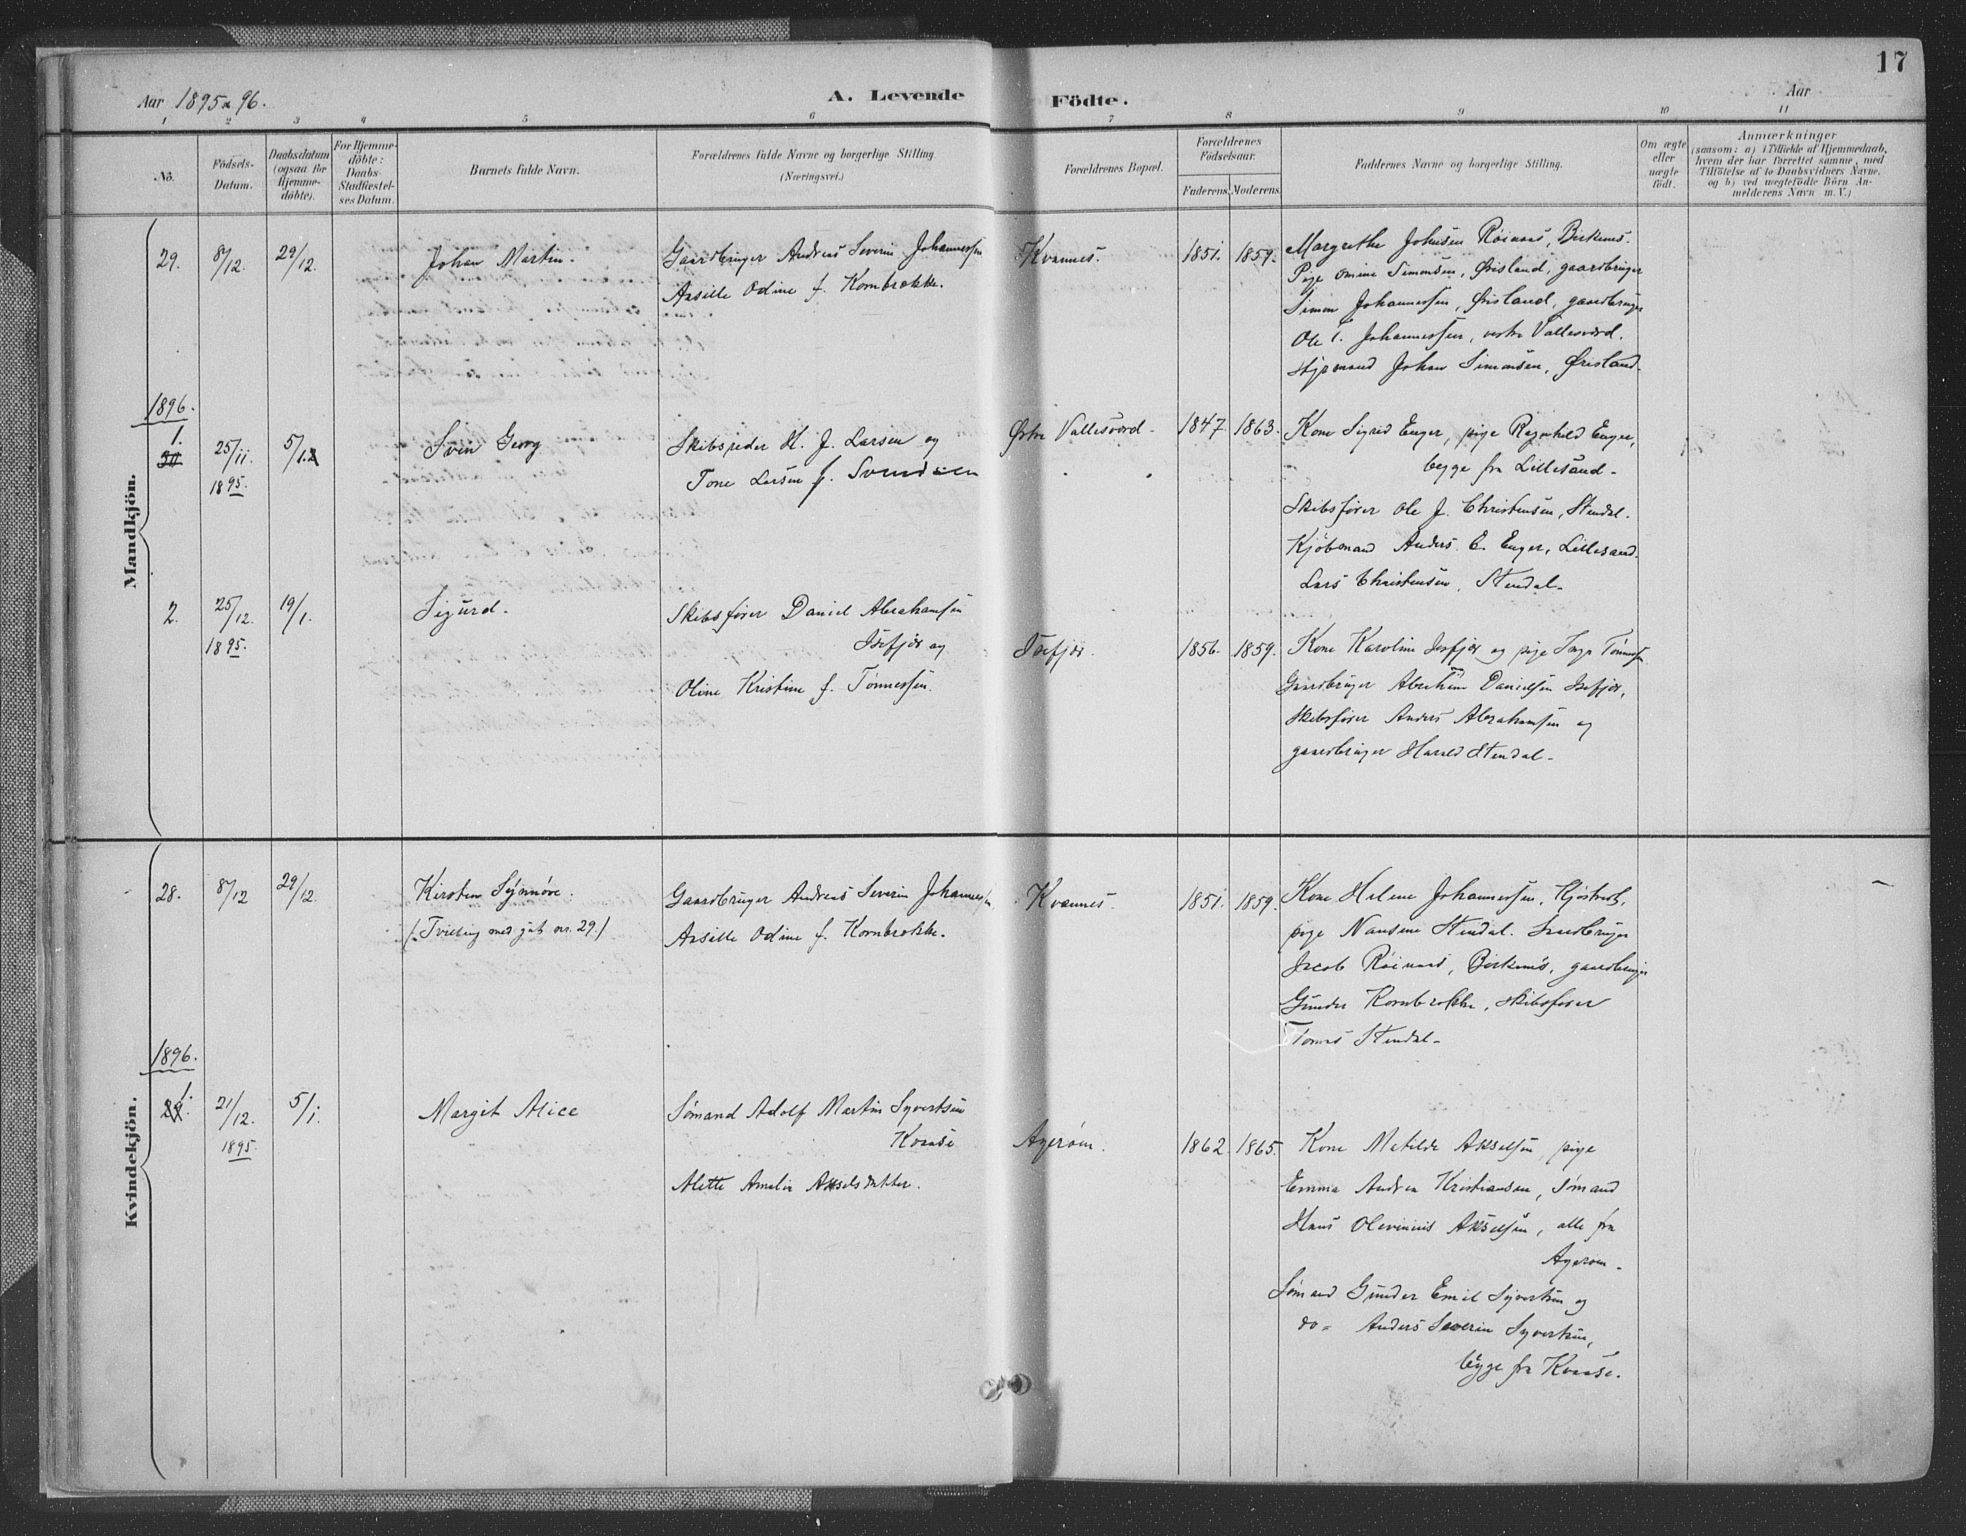 17
Aar 1895 & 96.
A. Levende Födte.
Aar
1 2 3 4 5 6 7 8 9 10 11
No.
Födsels-
Datum.
Daabsdatum
(ogsaa for
Hjemme-
döbte).
For Hjemme-
döbte:
Daabs-
Stadfæstel-
ses Datum.
Barnets fulde Navn.
Forældrenes fulde Navne og borgerlige Stilling.
(Næringsvei.)
Forældrenes Bopæl.
Forældrenes
Födselsaar.
Faderens. Moderens.
Faddernes Navne og borgerlige Stilling.
Om ægte
eller
uægte
födt.
Anmærkninger
(saasom: a) i Tilfælde af Hjemmedaab,
hvem der har forrettet samme, med
Tilföielse af to Daabsvidners Navne,
og b) ved uægtefödte Börn An-
melderens Navn m. V.)
Mandkjön.
29. 8/12. 29/12. Johan Martin. Gaardbruger Andreas Severin Johannessen
Assille Odine f. Kornbrekke.
Kvannes. 1851. 1859.
Margrethe Johnsen Röinaas, Birkenes.
Pige Omine Simonsen, Ørisland, gaardbruger
Simon Johannessen, Ørisland, gaardbruger
Ole T. Johannessen, vestre Vallesværd.
Styrmand Johan Simonsen, Ørisland.
1896.
1. 30 25/11. 1895. 5/1. Sven Georg Skibsreder H. J. Larsen og
Tone Larsen f. Svendsen
Østre Vallesværd. 1847. 1863.
Kone Sigrid Enger, pige Ragnhild Enger,
begge fra Lillesand.
Skibsfører Ole J. Christensen, Stendal.
Kjöbmand Anders C. Enger, Lillesand.
Lars Christensen, Stendal.
2. 25/12. 1895. 19/1. Sigurd. Skibsfører Daniel Abrahamsen
Isefjær og
Oline Kristine f. Tønnessen.
Isefjær. 1856. 1859.
Kone Karoline Isefjær og pige Inga Tønnessen
Gaardbruger Abraham Danielsen Isefjær,
Skibsfører Anders Abrahamsen og
gaardbruger Harald Stendal.
Kvindekjön.
28. 8/12 29/12. Kirsten Synnøve.
(Tvilling med gut nr. 29.)
Gaardbruger Andreas Severin Johannessen
Assille Odine f. Kornbrekke.
Kvannes. 1851. 1859.
Kone Helene Johannessen,
pige Nansine Stendal. Gaardbruger
Jacob Röinaas, Birkenes, gaardbruger
Gunder Kornbrekke, Skibsfører
Tomas Stendal.
1896.
1. 29. 21/12. 1895. 5/1. Margit Alice Sømand Adolf Martin Syvertsen
Kvaase
Mette Amelie Akselsdatter.
Agerøen. 1862. 1865.
Kone Matilde Akselsen, pige
Emma Andrea Kristiansen, Sømand
Hans Olevinius Akselsen, alle fra
Agerøen.
Sømand Gunder Emil Syvertsen og
do - Anders Severin Syvertsen,
begge fra Kvaase.